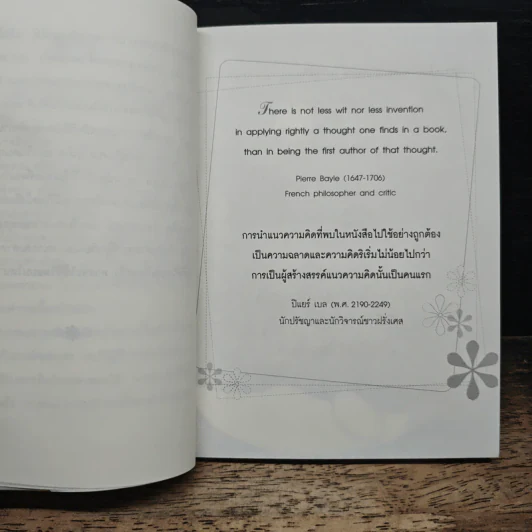 There is not less wit nor less invention
in applying rightly a thought one finds in a book,
than in being the first author of that thought.
Pierre Bayle (1647-1706)
French philosopher and critic
การนำแนวความคิดที่พบในหนังสือไปใช้อย่างถูกต้อง
เป็นความฉลาดและความคิดริเริ่มไม่น้อยไปกว่า
การเป็นผู้สร้างสรรค์แนวความคิดนั้นเป็นคนแรก
ปิแยร์ เบล (พ.ศ. 2190-2249)
นักปรัชญาและนักวิจารณ์ชาวฝรั่งเศส